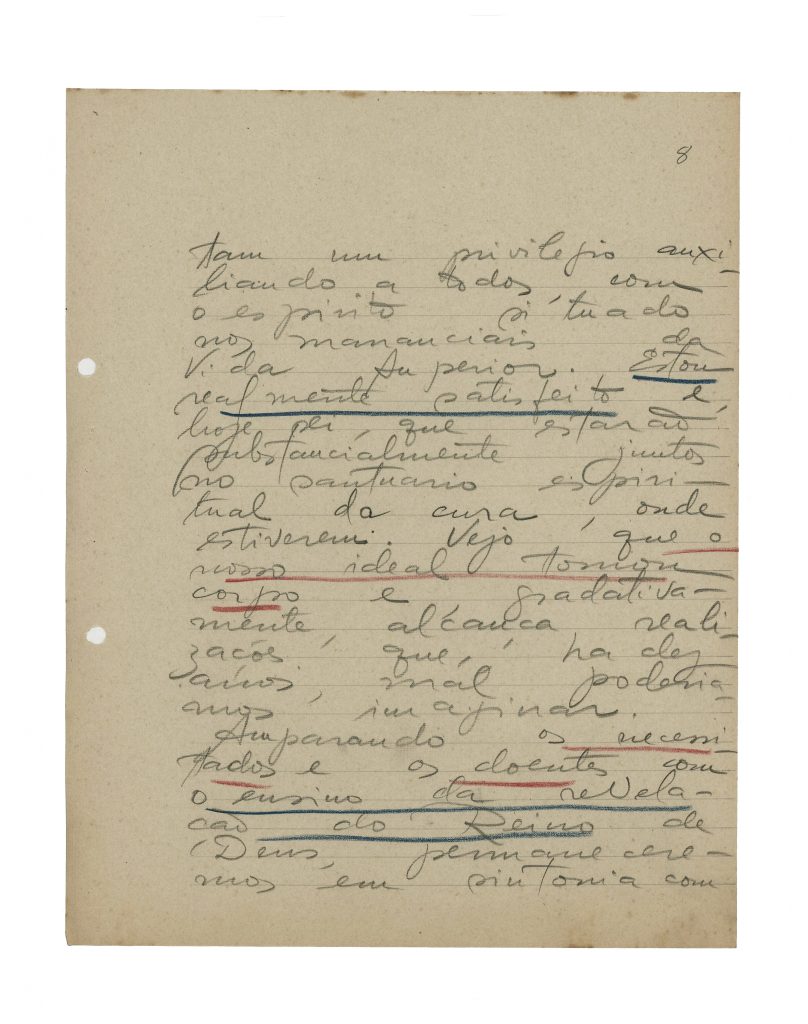 8
tam um privilegio auxi-
liando a todos com
o espirito situado
nos mananciais da
Vida Superior. Estou
realmente satisfeito e,
hoje sei, que estarão
substancialmente juntos
no santuario espiri-
tual da cura, onde
estiverem. Vejo, que o
nosso ideal tomou
corpo e gradativa-
mente, alcança reali-
zacões, que, ha dez
anos, mal poderia-
mos imaginar.
Amparando os necessi-
tados e os doentes com
o ensino da reVela-
cão do Reino de
Deus, permanecere-
mos em sintonia com